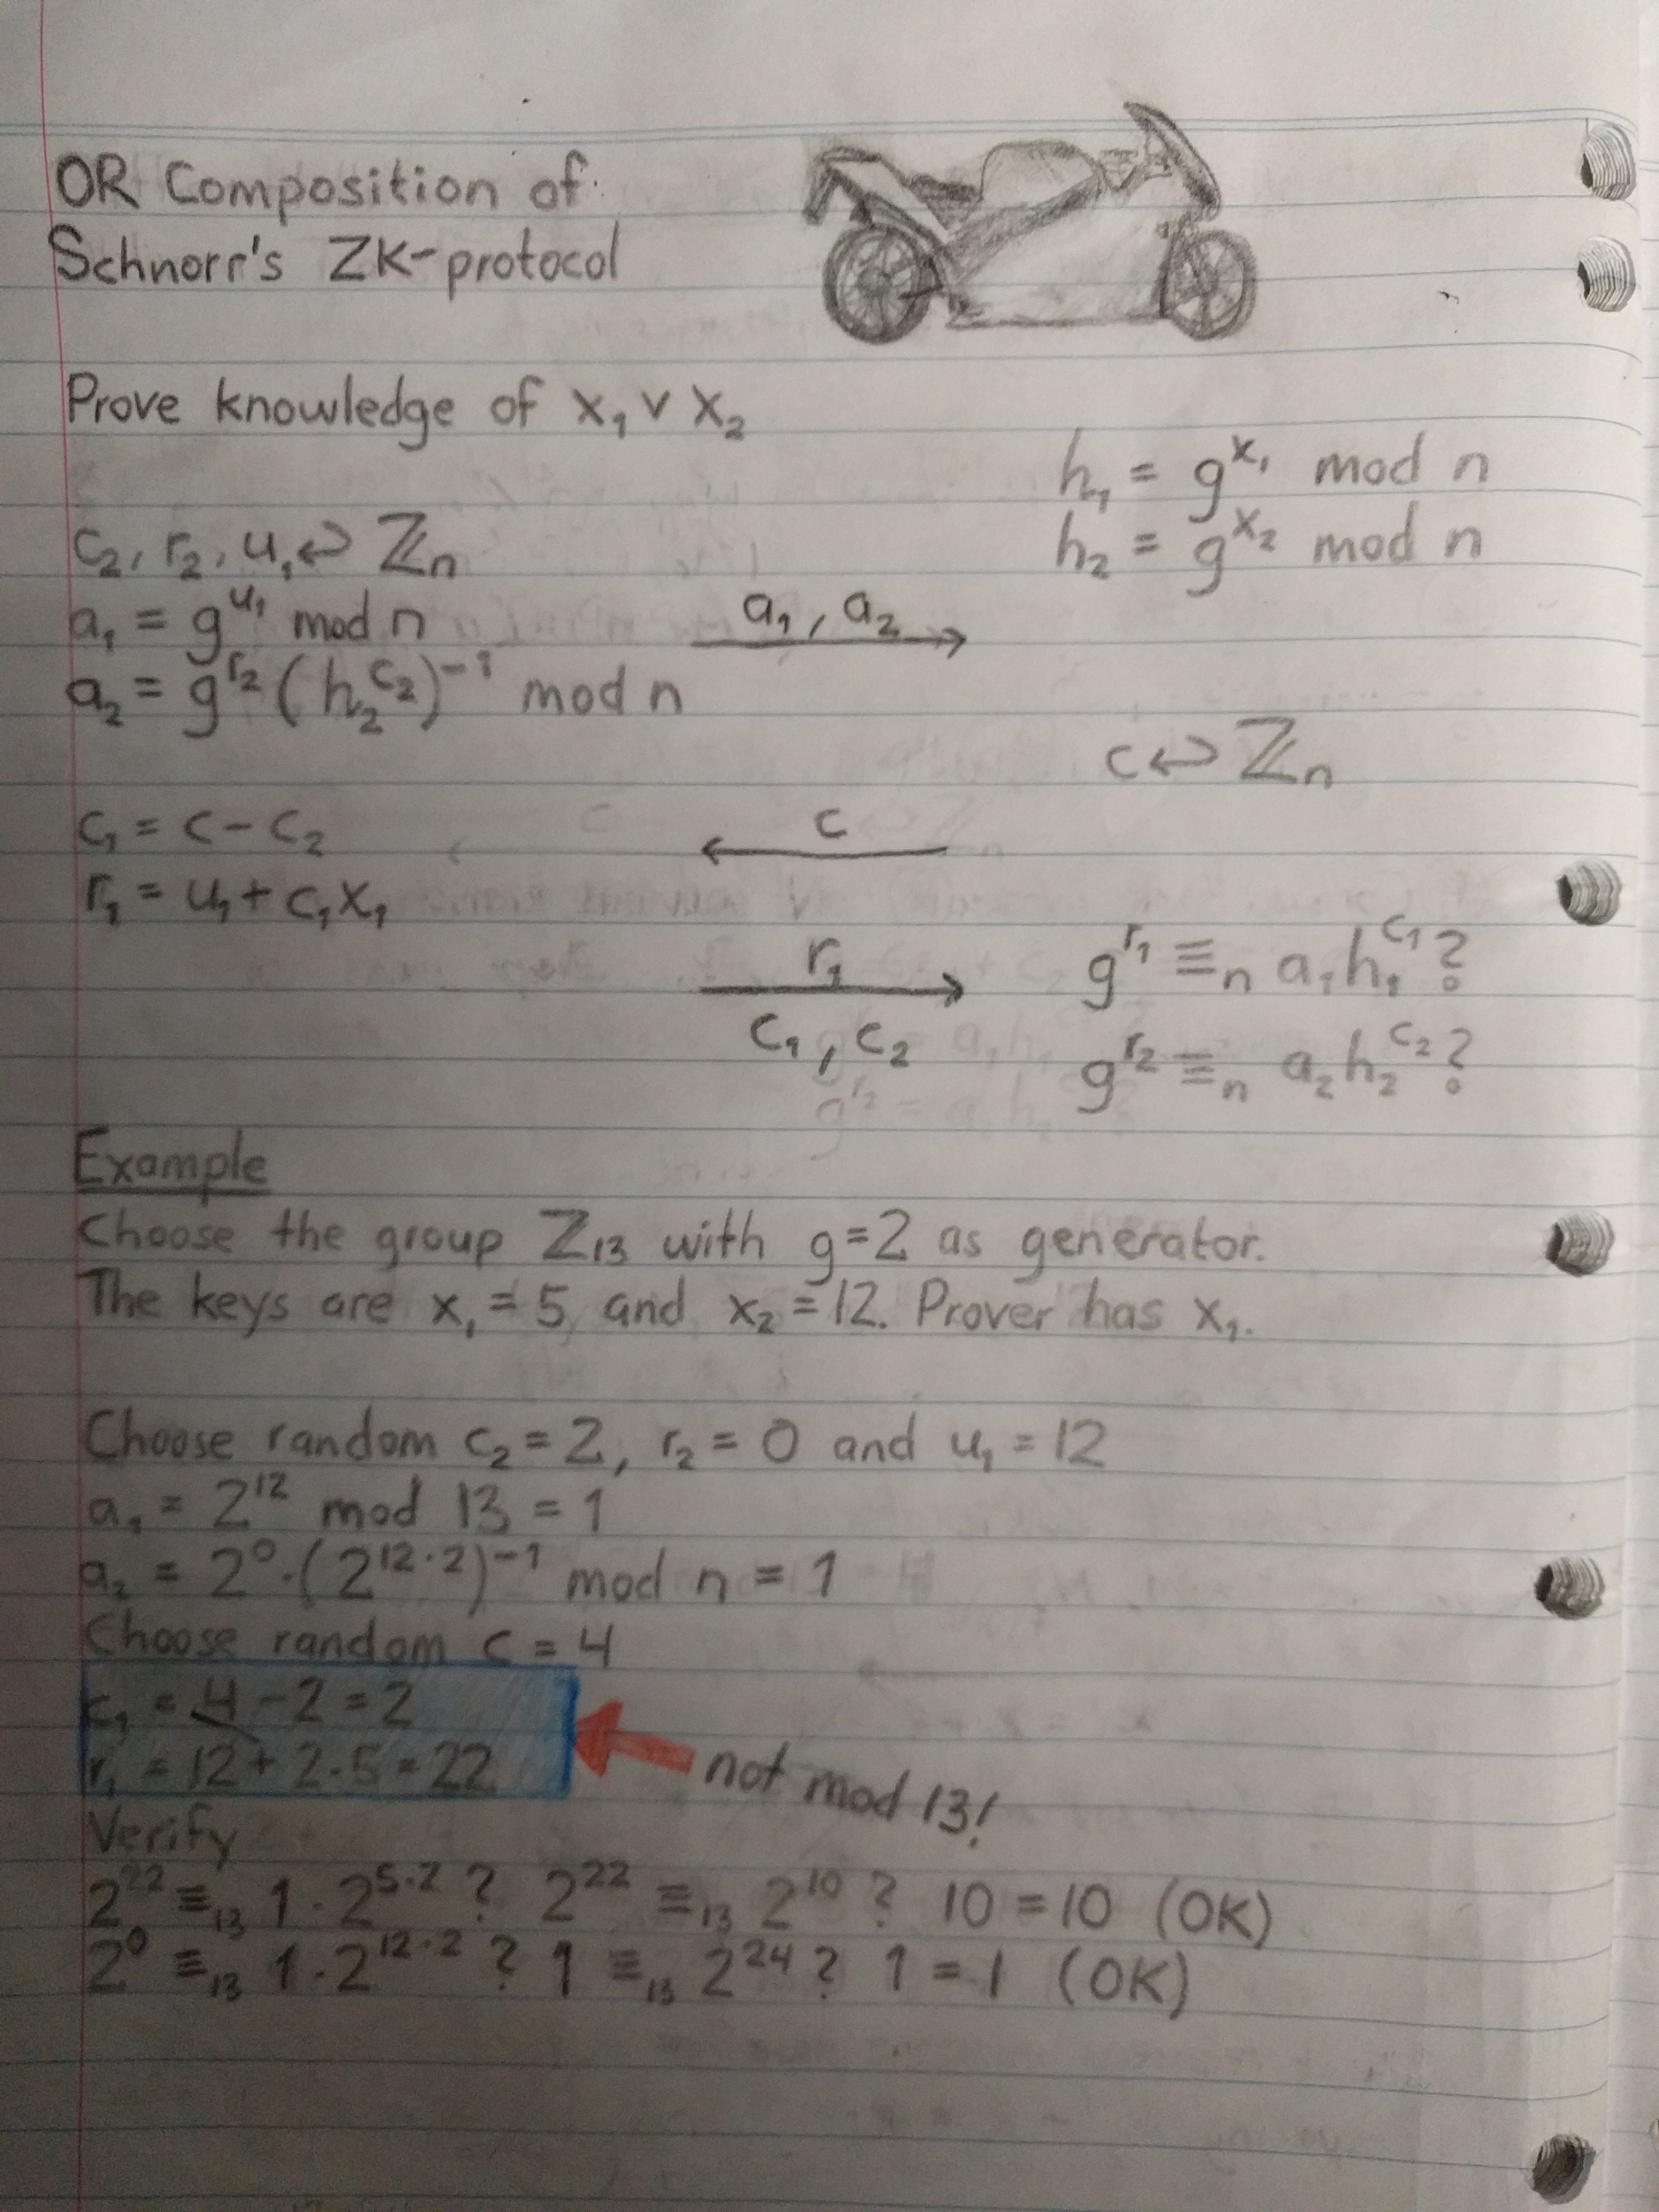 OR Composition of
Schnorr's ZK-protocol
Prove knowledge of x₁ ∨ x₂
h₁ = g^x₁ mod n
h₂ = g^x₂ mod n
c₂, r₂, u₁ ↩ ℤₙ
a₁ = g^u₁ mod n
a₁, a₂
a₂ = g^r₂ (h₂^c₂)⁻¹ mod n
c ↩ ℤₙ
c₁ = c - c₂
c
r₁ = u₁ + c₁x₁
r₁
c₁, c₂
g^r₁ ≡ₙ a₁h₁^c₁ ?
g^r₂ ≡ₙ a₂h₂^c₂ ?
Example
Choose the group ℤ₁₃ with g=2 as generator.
The keys are x₁ = 5 and x₂ = 12. Prover has x₁.
Choose random c₂ = 2, r₂ = 0 and u₁ = 12
a₁ = 2¹² mod 13 = 1
a₂ = 2⁰·(2^(12·2))⁻¹ mod n = 1
Choose random c = 4
c₁ = 4 - 2 = 2
r₁ = 12 + 2·5 = 22
not mod 13!
Verify
2²² ≡₁₃ 1·2^(5·2) ? 2²² ≡₁₃ 2¹⁰ ? 10 = 10 (OK)
2⁰ ≡₁₃ 1·2^(12·2) ? 1 ≡₁₃ 2²⁴ ? 1 = 1 (OK)